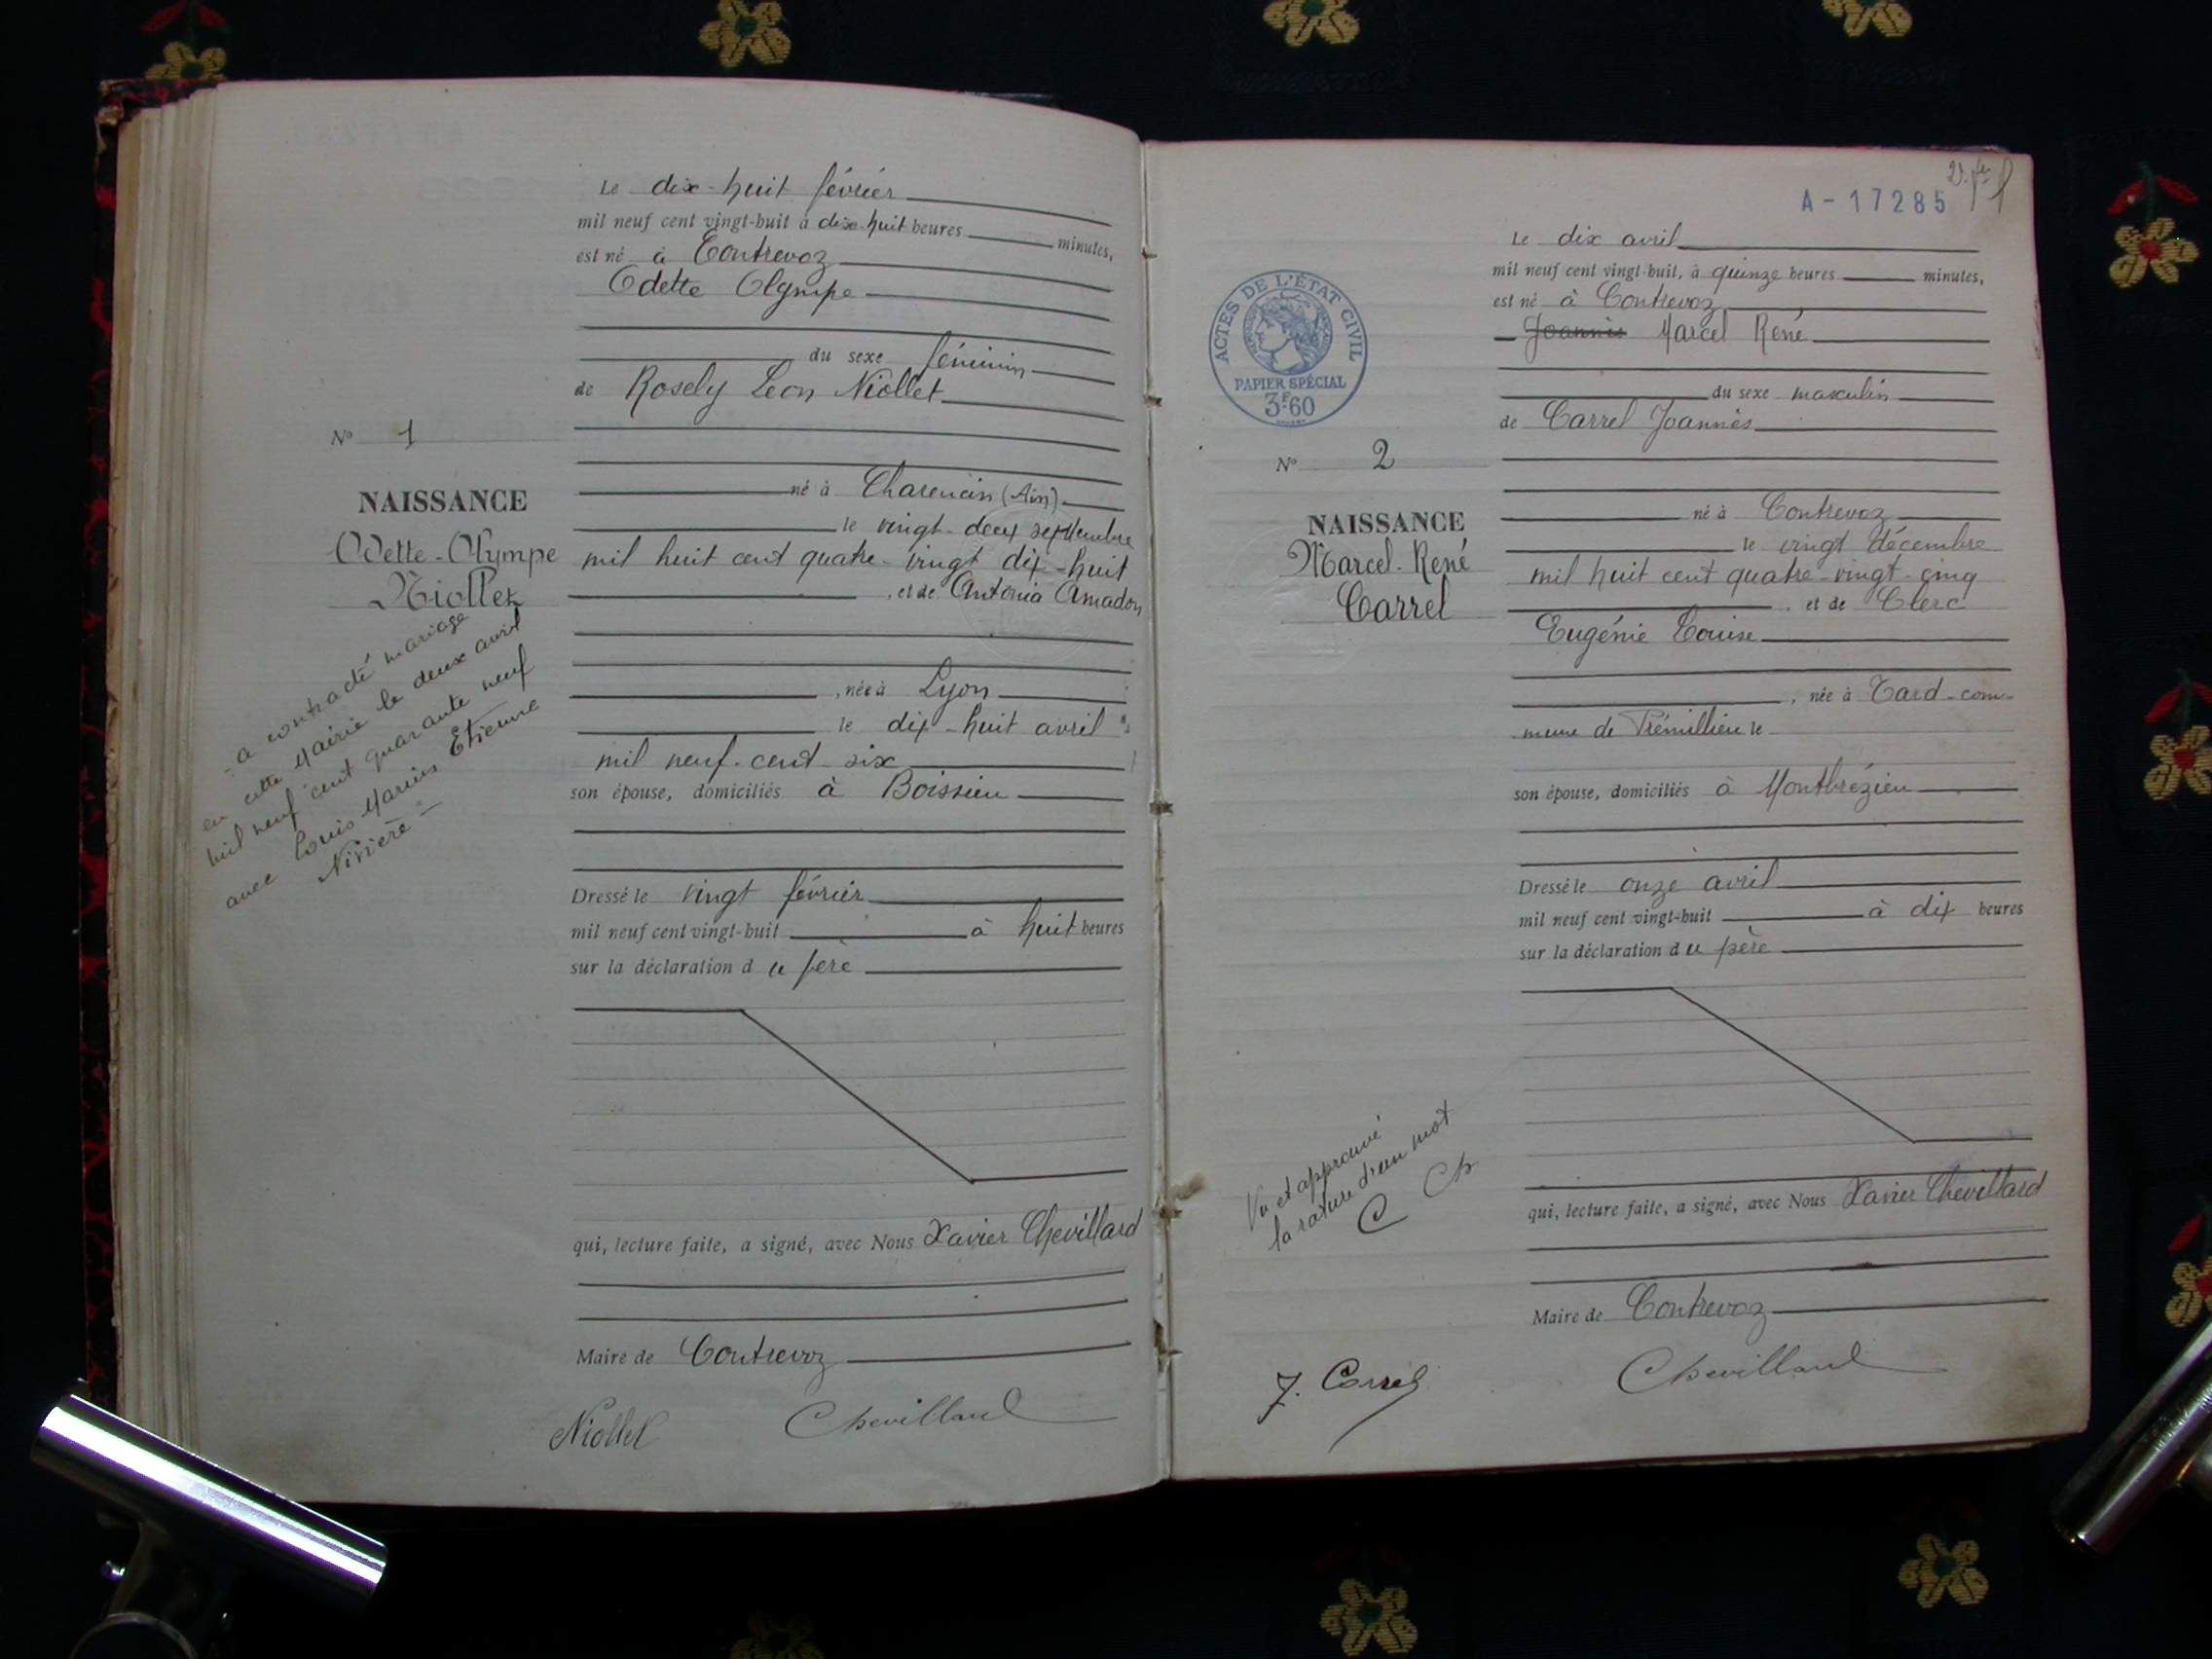 Le dix-huit février
mil neuf cent vingt-huit à dix-huit heures minutes,
est né à Contrevoz
Odette Olympe
du sexe féminin
de Rosely Leon Niollet
N° 1
né à Charencin (Ain)
NAISSANCE
le vingt-deux septembre
Odette-Olympe
mil huit cent quatre-vingt dix-huit
Niollet
, et de Antonia Amadon
, née à Lyon
le dix-huit avril
mil neuf-cent-six
son épouse, domiciliés à Boissieu
- a contracté mariage
en cette Mairie le deux avril
mil neuf cent quarante neuf
avec Louis Marius Etienne
Nivière -
Dressé le vingt février
mil neuf cent vingt-huit à huit heures
sur la déclaration du père
qui, lecture faite, a signé, avec Nous Xavier Chevillard
Maire de Contrevoz
Niollet Chevillard
A-17285
Le dix avril
mil neuf cent vingt-huit, à quinze heures minutes,
est né à Contrevoz
Joannès Marcel René
du sexe masculin
de Carrel Joannès
ACTES DE L'ÉTAT CIVIL
PAPIER SPÉCIAL
3F60
N° 2
né à Contrevoz
NAISSANCE
le vingt décembre
Marcel-René
mil huit cent quatre-vingt-cinq
Carrel
, et de Clerc
Eugénie Louise
, née à Tard-com-
mune de Prémillieu le
son épouse, domiciliés à Montbrézieu
Dressé le onze avril
mil neuf cent vingt-huit à dix heures
sur la déclaration du père
Vu et approuvé
la rature d'un mot
C Ch
qui, lecture faite, a signé, avec Nous Xavier Chevillard
Maire de Contrevoz
J. Carrel Chevillard